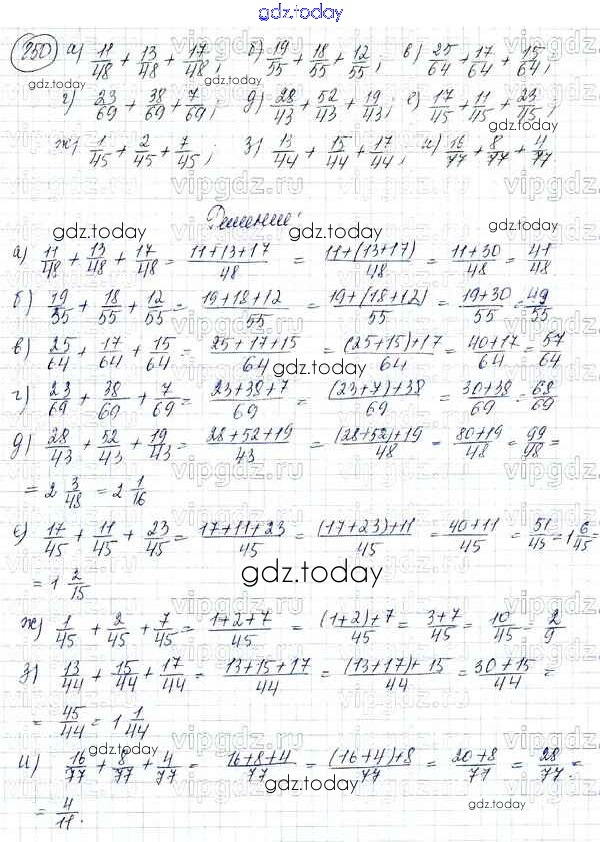 gdz.today
250) а) 11/48 + 13/48 + 17/48; б) 19/55 + 18/55 + 12/55; в) 25/64 + 17/64 + 15/64;
г) 23/69 + 38/69 + 7/69; д) 28/43 + 52/43 + 19/43; е) 17/45 + 11/45 + 23/45;
ж) 1/45 + 2/45 + 7/45; з) 13/44 + 15/44 + 17/44; и) 16/77 + 8/77 + 4/77
Решение:
а) 11/48 + 13/48 + 17/48 = (11+13+17)/48 = (11+(13+17))/48 = (11+30)/48 = 41/48
б) 19/55 + 18/55 + 12/55 = (19+18+12)/55 = (19+(18+12))/55 = (19+30)/55 = 49/55
в) 25/64 + 17/64 + 15/64 = (25+17+15)/64 = ((25+15)+17)/64 = (40+17)/64 = 57/64
г) 23/69 + 38/69 + 7/69 = (23+38+7)/69 = ((23+7)+38)/69 = (30+38)/69 = 68/69
д) 28/43 + 52/43 + 19/43 = (28+52+19)/43 = ((28+52)+19)/48 = (80+19)/48 = 99/98 =
= 2 3/48 = 2 1/16
е) 17/45 + 11/45 + 23/45 = (17+11+23)/45 = ((17+23)+11)/45 = (40+11)/45 = 51/45 = 1 6/45 =
= 1 2/15
ж) 1/45 + 2/45 + 7/45 = (1+2+7)/45 = ((1+2)+7)/45 = (3+7)/45 = 10/45 = 2/9
з) 13/44 + 15/44 + 17/44 = (13+15+17)/44 = ((13+17)+15)/44 = (30+15)/44 =
= 45/44 = 1 1/44
и) 16/77 + 8/77 + 4/77 = (16+8+4)/77 = ((16+4)+8)/77 = (20+8)/77 = 28/77 =
= 4/11.